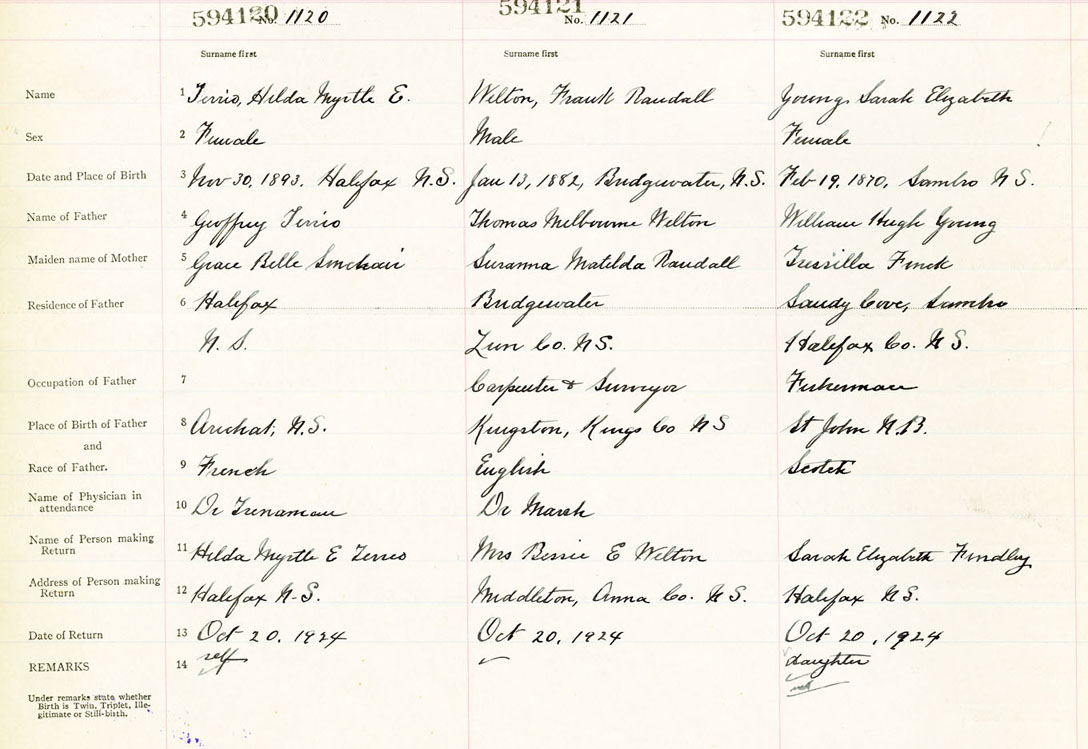 594120 No. 1120 594121 No. 1121 594122 No. 1122
Surname first Surname first Surname first
Name 1 Terrio, Hilda Myrtle E. Welton, Frank Randall Young, Sarah Elizabeth
Sex 2 Female Male Female
Date and Place of Birth 3 Nov 30, 1893, Halifax N.S. Jan 13, 1882, Bridgewater, N.S. Feb 19, 1870, Sambro N S.
Name of Father 4 Geoffrey Terrio Thomas Melbourne Welton William Hugh Young
Maiden name of Mother 5 Grace Belle Susanna Matilda Randall Finck
Residence of Father 6 Halifax Bridgewater Sandy Cove, Sambro
N. S. Lun Co. N S. Halifax Co. N S.
Occupation of Father 7 Carpenter & Surveyor Fisherman
Place of Birth of Father 8 Arichat, N.S. Kingston, Kings Co N S St John N.B.
and
Race of Father. 9 French English Scotch
Name of Physician in
attendance 10 Dr Trenaman Dr Marsh
Name of Person making
Return 11 Hilda Myrtle E Terrio Mrs Bessie E Welton Sarah Elizabeth Findley
Address of Person making
Return 12 Halifax N-S. Middleton, Anna Co. N S. Halifax N S.
Date of Return 13 Oct 20, 1924 Oct 20, 1924 Oct 20, 1924
REMARKS 14 self daughter
Under remarks state whether
Birth is Twin, Triplet, Ille-
gitimate or Still-birth.